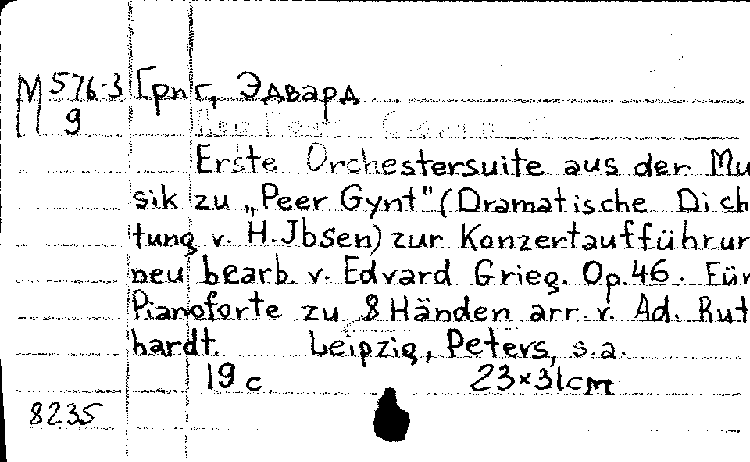 М 576-3 Григ, Эдвард
9
Erste Orchestersuite aus der Mu
sik zu „Peer Gynt" (Dramatische Dich
tung v. H. Jbsen) zur Konzertaufführun
neu bearb. v. Edvard Grieg. Op. 46. Für
Pianoforte zu 8 Händen arr. v. Ad. Rut
hardt. Leipzig, Peters, s.a.
19 c. 23×31cm
8235